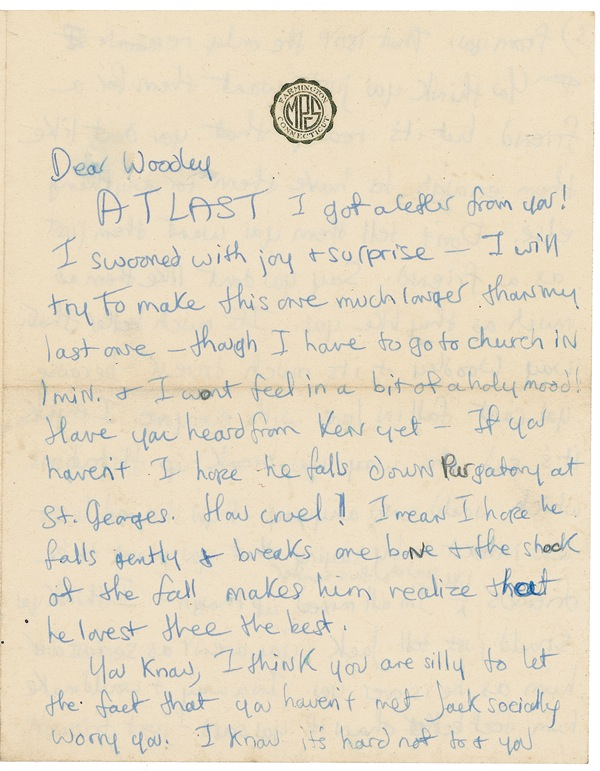 FARMINGTON
MPS
CONNECTICUT
Dear Woodley
AT LAST I got a letter from you!
I swooned with joy + surprise — I will
try to make this one much longer than my
last one — though I have to go to church in
1 min. + I wont feel in a bit of a holy mood!
Have you heard from Ken yet — If you
havent I hope he falls down Purgatory at
St. Georges. How cruel! I mean I hope he
falls gently & breaks one bone + the shock
of the fall makes him realize that
he lovest thee the best.
You know, I think you are silly to let
the fact that you haven't met Jack socially
worry you. I know it's hard not to + you